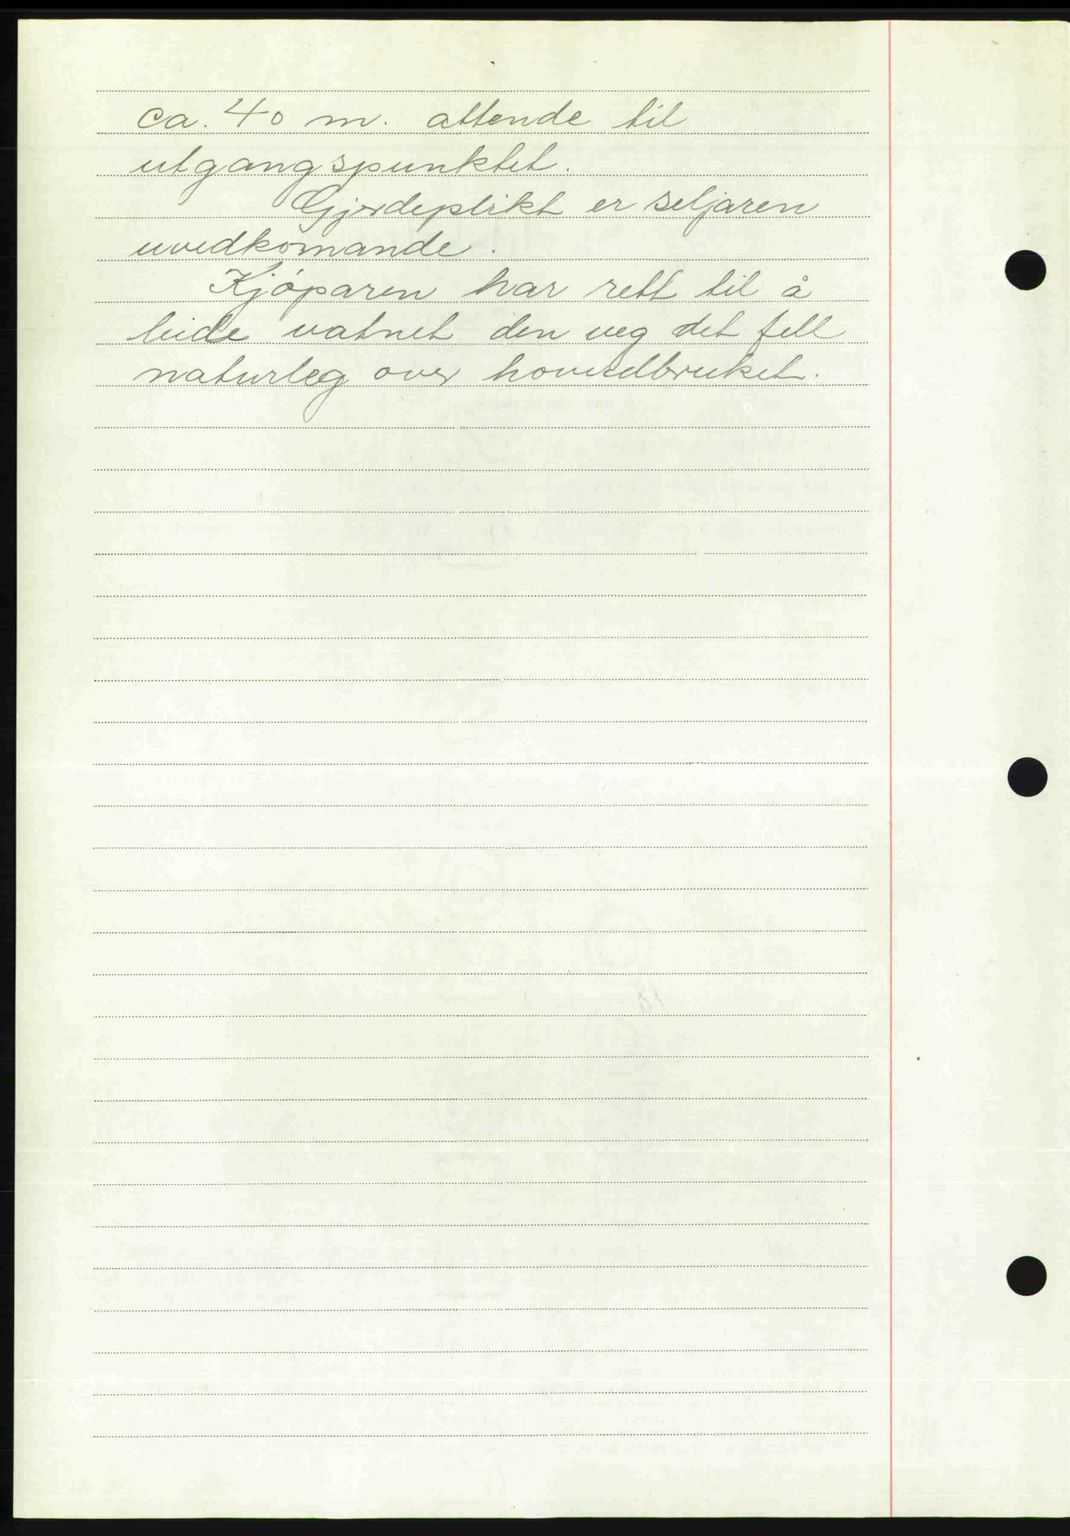 ca. 40 m. attende til
utgangspunktet.
Gjerdeplikt er seljaren
uvedkomande.
Kjøparen har rett til å
leide vatnet den veg det fell
naturleg over hovudbruket.